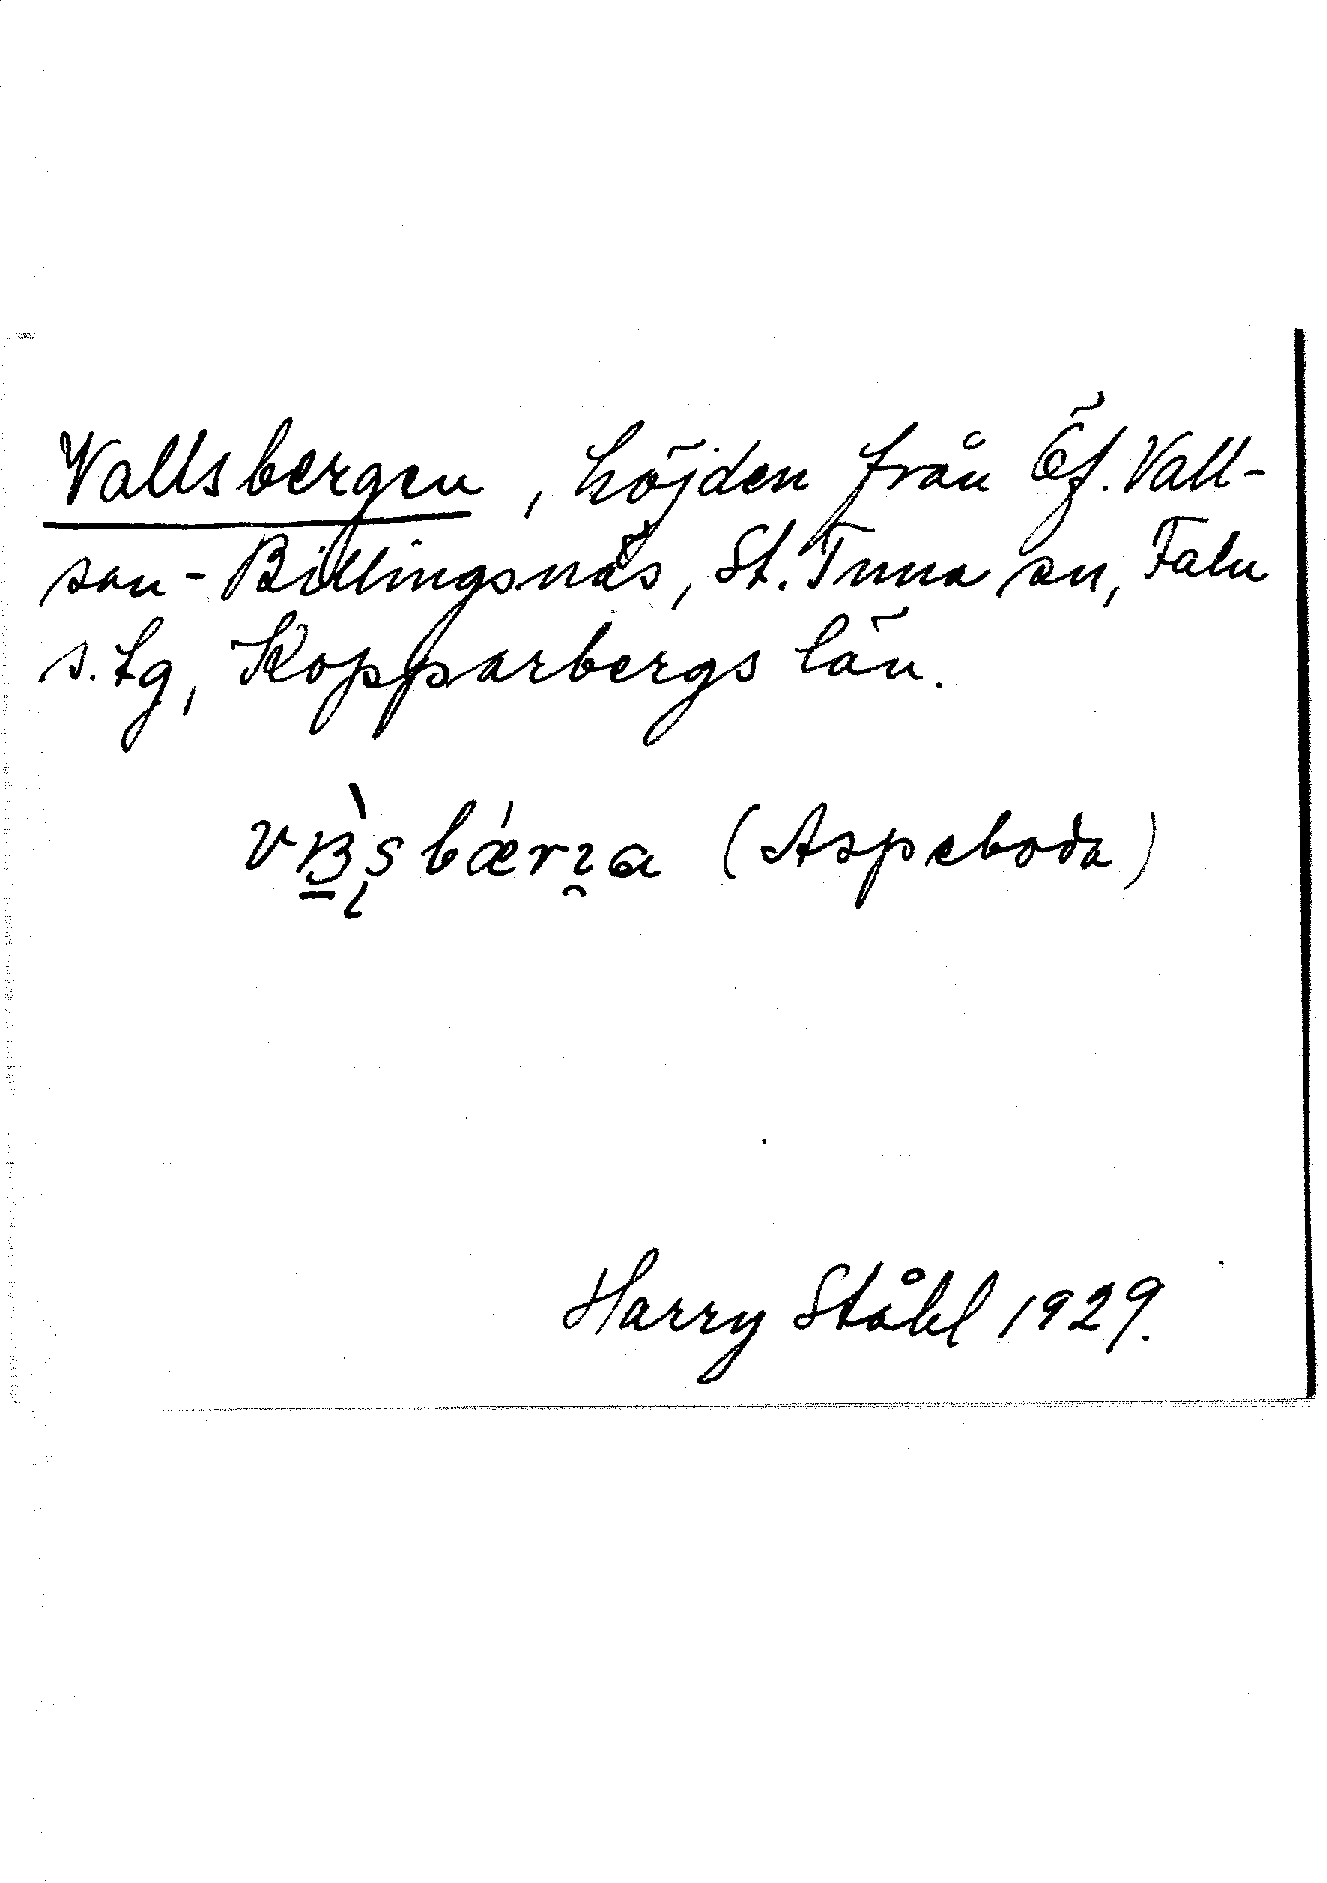 Vallsbergen, höjden från Öf. Vall-
san - Billingsnäs, St. Tuna sn, Falu
s. tg, Kopparbergs län.
(Aspeboda)
Harry Ståhl 1929.